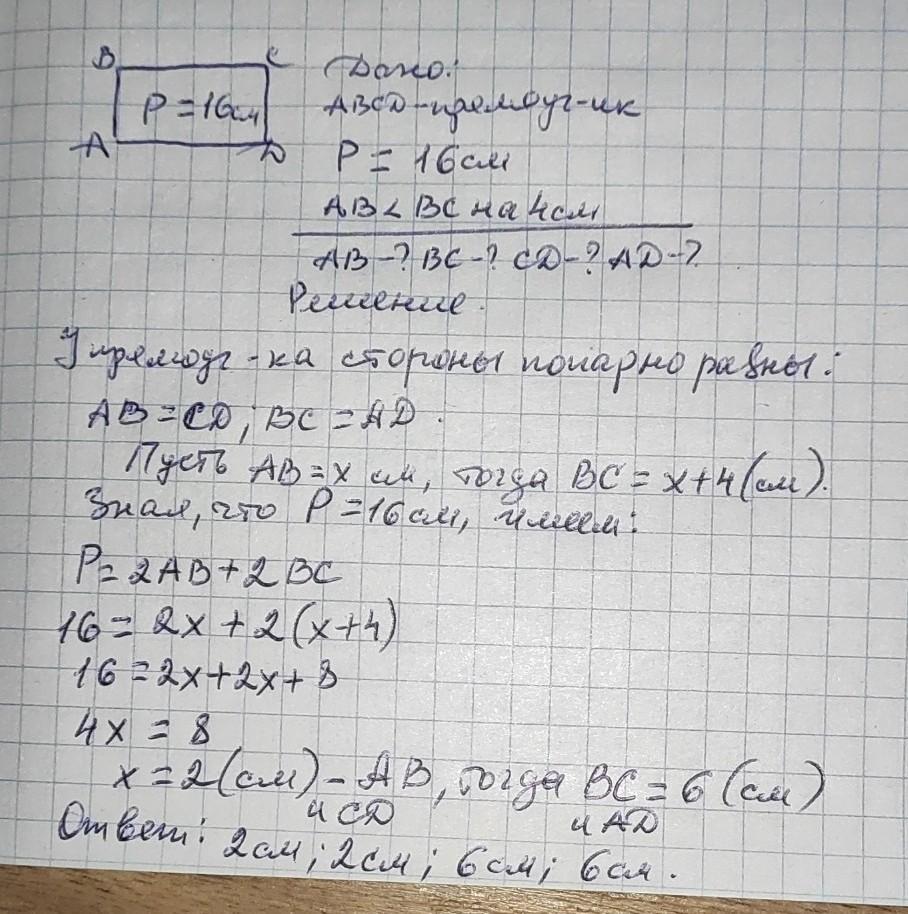 B C
P = 16см
A D
Дано:
ABCD-прямоуг-ик
P = 16см
AB < BC на 4см
AB-? BC-? CD-? AD-?
Решение.
У прямоуг-ка стороны попарно равны:
AB = CD; BC = AD.
Пусть AB = x см, тогда BC = x+4(см).
Зная, что P = 16см, имеем:
P = 2AB + 2BC
16 = 2x + 2(x+4)
16 = 2x+2x+8
4x = 8
x = 2(см) - AB, тогда BC = 6 (см)
и CD и AD
Ответ: 2см; 2см; 6см; 6см.